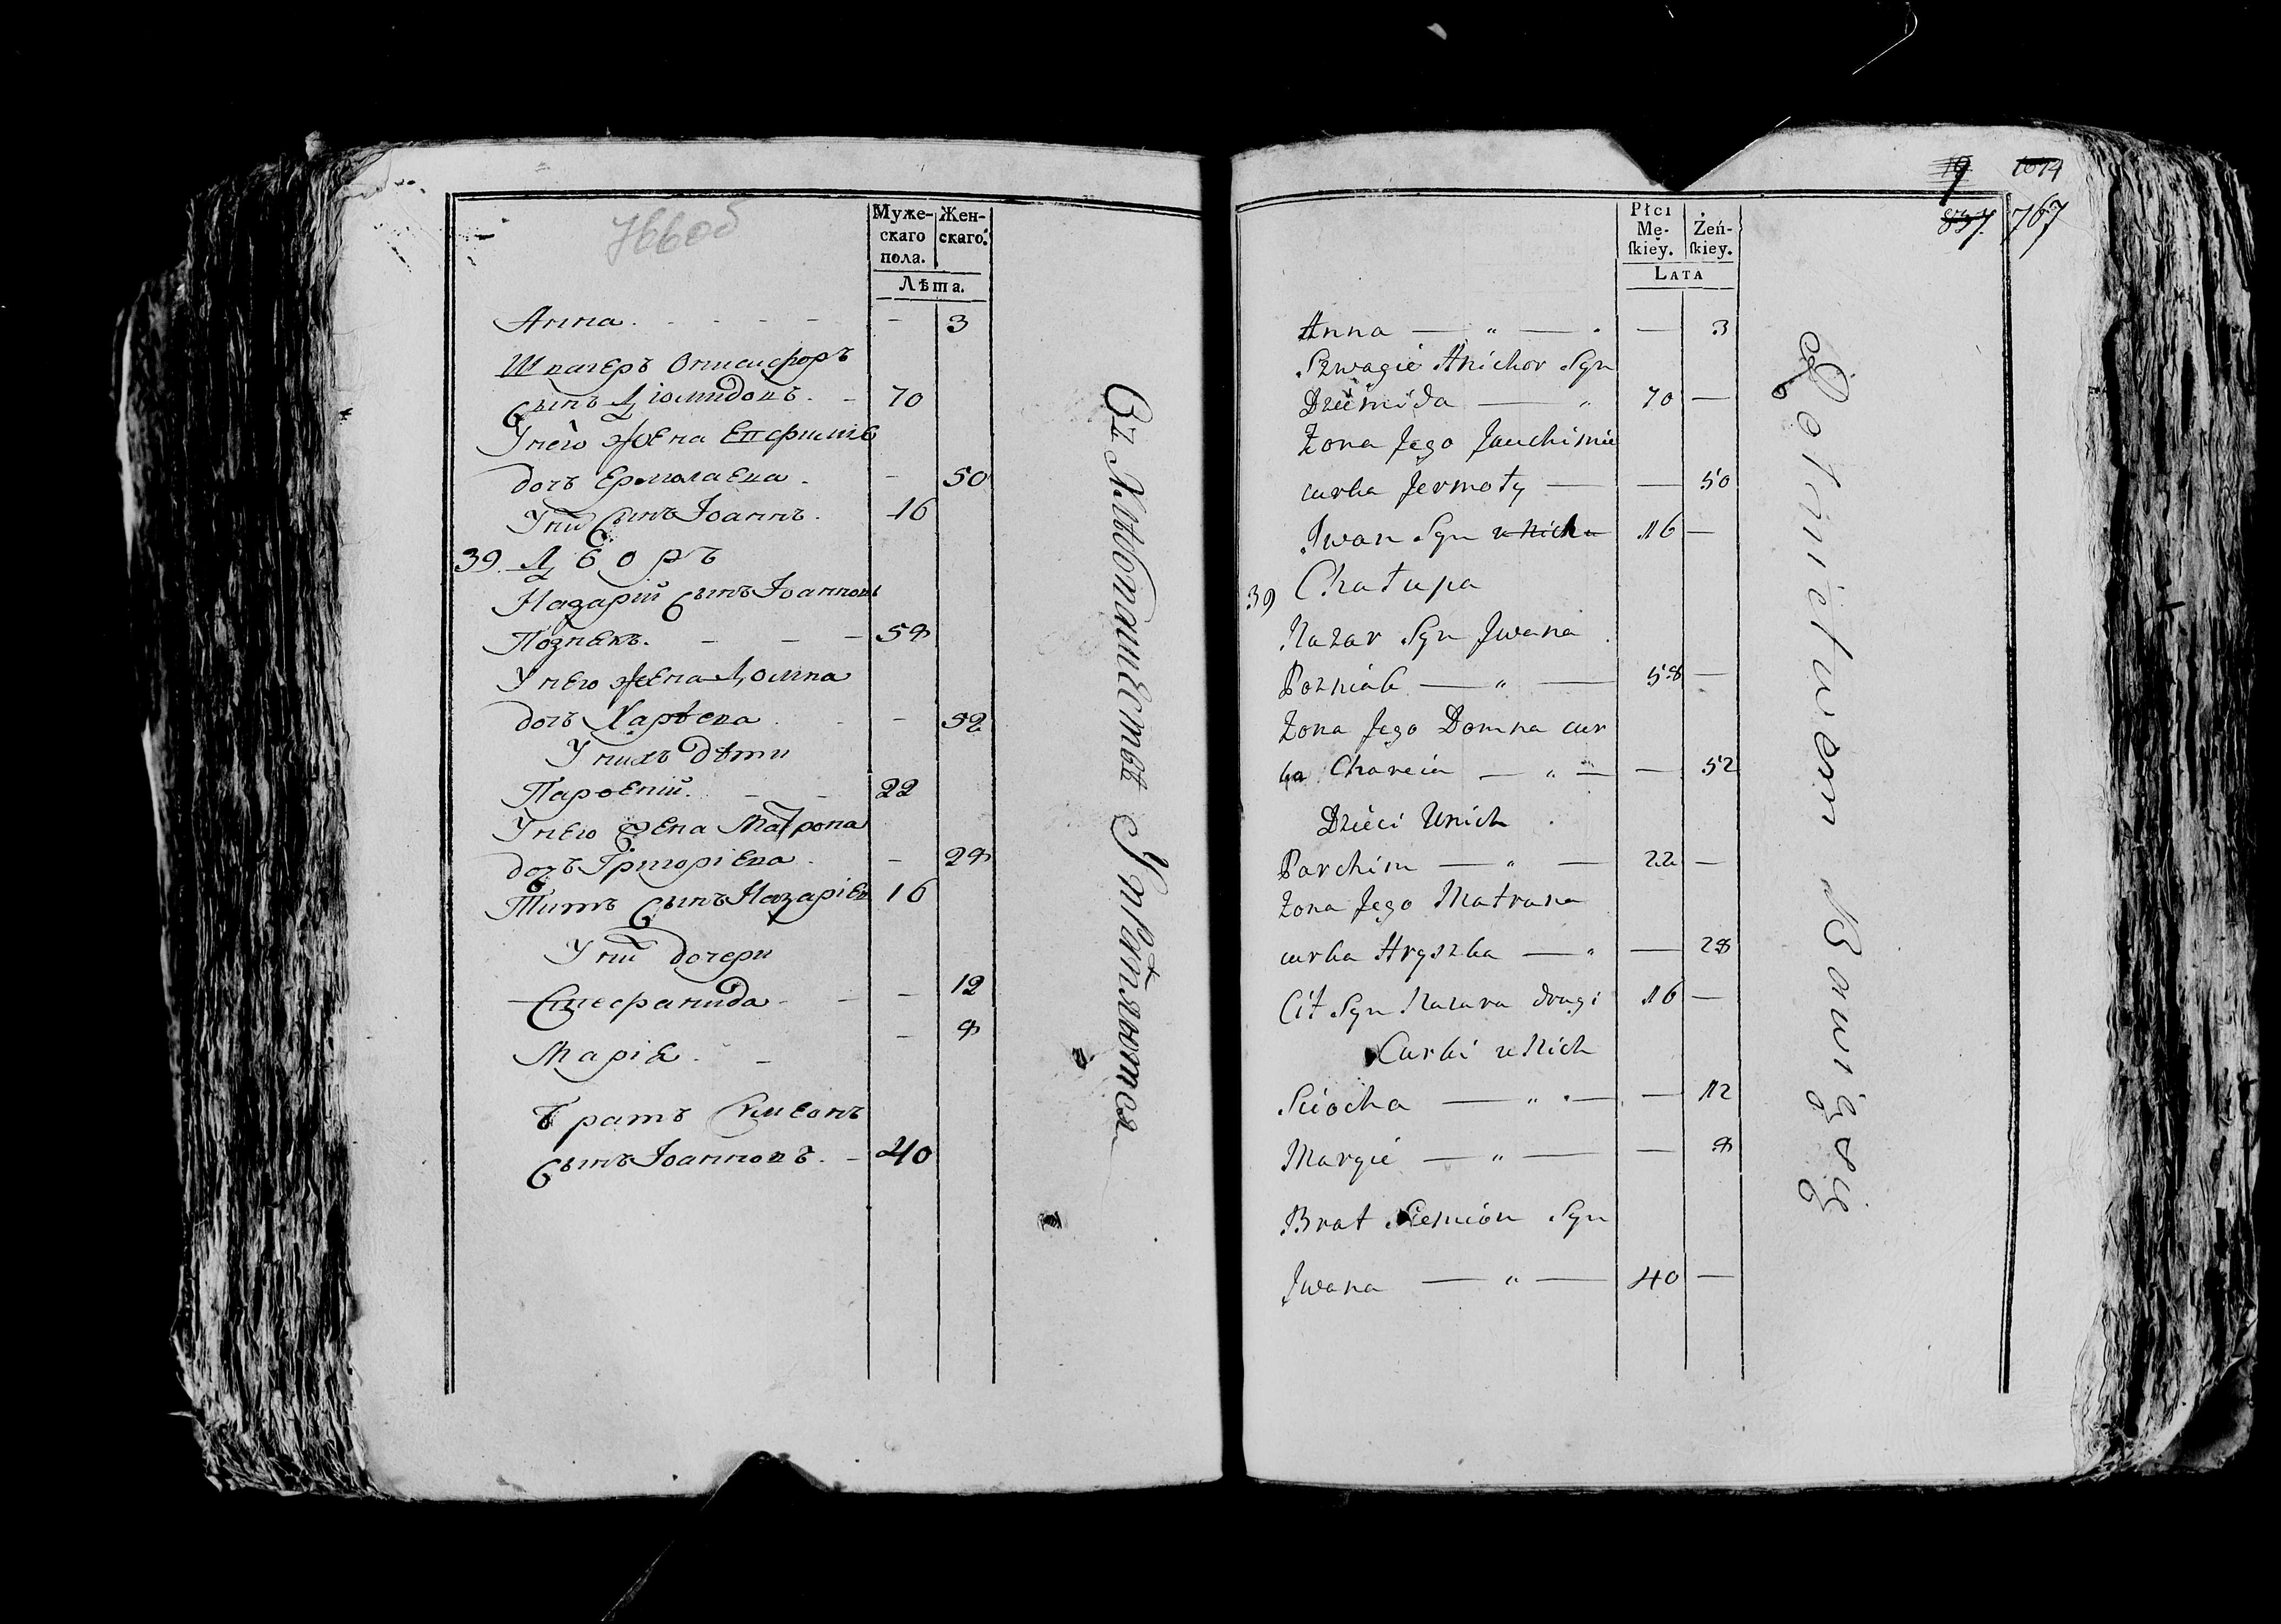 766об
Муже-
скаго
пола.
Жен-
скаго.
Лѣта.
Анна. - - - - - 3
Швагеръ Онисифоръ
Сынъ Діомидовъ. - 70
У него жена Евфиміѧ
дочъ Ермолаева. - 50
У ни Сынъ Іоаннъ. 16
39 Дворъ
Назарій Сынъ Іоанновъ
Познякъ. - - - 58
У него жена Домна
дочъ Харѣева - 52
У нихъ дѣти
Парѳеній. - - 22
У него жена Матрона
дочъ Григоріева. - 28
Титъ Сынъ Назаріевъ 16
У ни дочери
Стефанида - - - 12
Маріѧ. - - 8
Братъ Симеонъ
Сынъ Іоанновъ. - 40
Въ Житомирскомъ
19 1074
837 767
Płci
Mę-
ſkiey.
Żeń-
ſkiey.
LATA
Anna — " — — 3
Szwagie Anichor Syn
Dziemida — " 70 —
Żona Jego Jauchimie
curka Jermoły — — 50
Jwan Syn u Nich 16 —
39 Chałupa
Nazar Syn Jwana
Pozniak — " — 58 —
Żona Jego Domna cur
ka Chareia — " — — 52
Dzieci Unich
Parchim — " — 22 —
Żona Jego Matrana
curka Hryszka — " — 28
Cit Syn Nazara drugi 16 —
Curki u Nich
Sciocha — " — — 12
Margie — " — — 8
Brat Siemion Syn
Jwana — " — 40 —